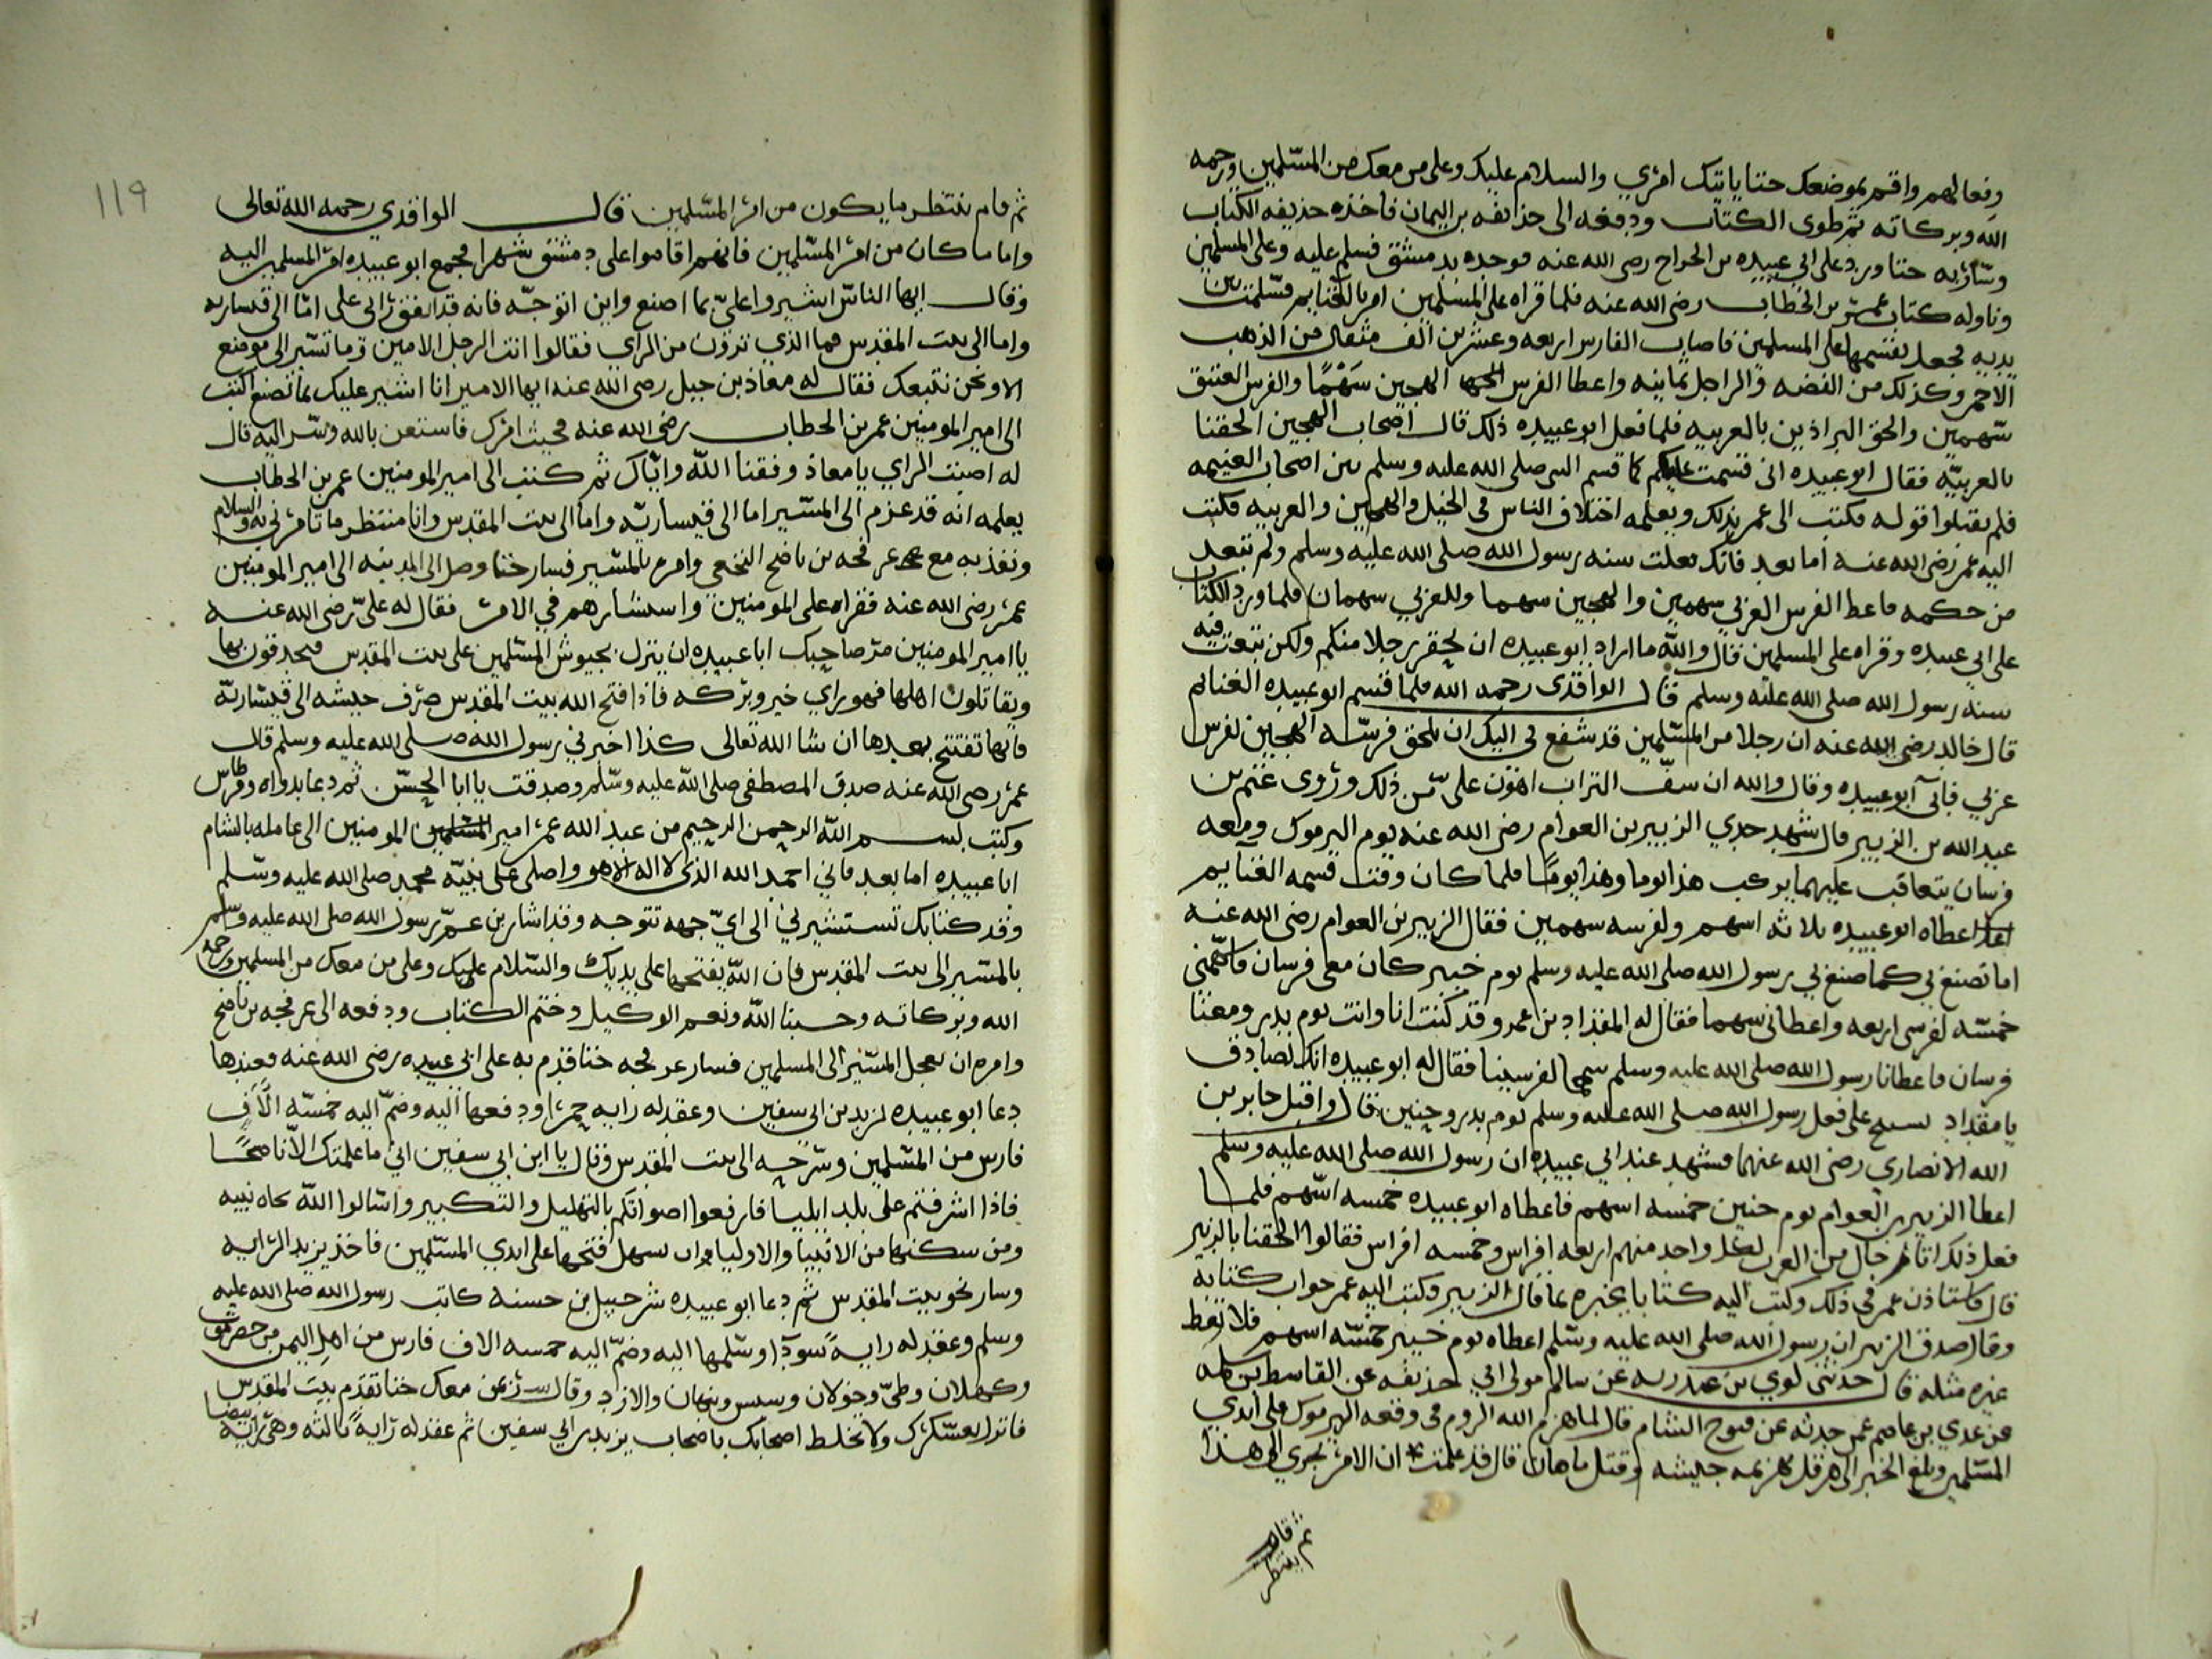 وفعالهم واقم بموضعك حتا ياتيك امري والسلام عليك وعلى من معك من المسلمين ورحمه
الله وبركاته ثم طوى الكتاب ودفعه الى حذيفه بن اليمان فاخذه حذيفه الكتاب
وسار به حتا ورد على ابي عبيده بن الجراح رضى الله عنه فوجده بدمشق فسلم عليه وعلى المسلمين
وناوله كتاب عمر بن الخطاب رضى الله عنه فلما قراه على المسلمين امر بالغنايم فسلمت بين
يديه فجعل يقسمها على المسلمين فاصاب الفارس اربعه وعشرين الف مثقال من الذهب
الاحمر وكذلك من الفضه والراجل ثمانيه واعطا الفرس الهجين سهما والفرس العتيق
سهمين والحق البراذين بالعربيه فلما فعل ابو عبيده ذلك قال اصحاب الهجين الحقنا
بالعربيه فقال ابو عبيده انى قسمت عليكم كما قسم النبى صلى الله عليه وسلم بين اصحاب الغنيمه
فلم يقبلوا قوله فكتب الى عمر بذلك ويعلمه اختلاف الناس فى الخيل والهجين والعربيه فكتب
اليه عمر رضى الله عنه اما بعد فانك فعلت سنه رسول الله صلى الله عليه وسلم ولم تتعد
من حكمه فاعط الفرس العربى سهمين والهجين سهما وللعربي سهمان فلما ورد الكتاب
على ابي عبيده وقراه على المسلمين قال والله ما اراد ابو عبيده ان يحقر رجلا منكم ولكن تبعت فيه
سنه رسول الله صلى الله عليه وسلم قال الواقدى رحمه الله فلما قسم ابو عبيده الغنايم
قال خالد رضى الله عنه ان رجلا من المسلمين قد شفع لى اليك ان تلحق فرسه الهجين بفرس
عربي فابى ابو عبيده وقال والله ان سف التراب اهون على من ذلك وروى غنم بن
عبد الله بن الزبير قال شهد جدي الزبير بن العوام رضى الله عنه يوم اليرموك ومعه
فرسان يتعاقب عليهما يركب هذا يوما وهذا يوما فلما كان وقت قسمه الغنايم
اعطاه ابو عبيده ثلاثه اسهم ولفرسه سهمين فقال الزبير بن العوام رضى الله عنه
اما تصنع بي كما صنع بي رسول الله صلى الله عليه وسلم يوم خيبر كان معى فرسان فاسهمني
خمسه لفرسى اربعه واعطانى سهما فقال له المقداد بن عمرو قد كنت انا وانت يوم بدر ومعنا
فرسان فاعطانا رسول الله صلى الله عليه وسلم سهما لفرسينا فقال له ابو عبيده انك لصادق
يا مقداد على فعل رسول الله صلى الله عليه وسلم يوم بدر وحنين قال واقبل جابر بن
الله الانصارى رضى الله عنهما فشهد عند ابي عبيده ان رسول الله صلى الله عليه وسلم
اعطا الزبير بن العوام يوم حنين خمسه اسهم فاعطاه ابو عبيده خمسه اسهم فلما
فعل ذلك اتاه رجال من العرب لكل واحد منهم اربعه افراس وخمسه افراس فقالوا الحقنا بالزبير
قال فاستاذن عمر فى ذلك وكتب اليه كتابا يخبره بما قال الزبير وكتب اليه عمر جواب كتابه
وقال صدق الزبير ان رسول الله صلى الله عليه وسلم اعطاه يوم خيبر خمسه اسهم فلا تعط
غيره مثله قال حدثنى لوي بن عبد ربه عن سالم مولى ابي حذيفه عن القاسط بن سلمه
عن عدي بن عاصم عمن حدثه عن فتوح الشام قال لما هزم الله الروم فى وقعه اليرموك على ايدي
المسلمين وبلغ الخبر الى هرقل بهزيمه جيشه وقتل ماهان قال قد علمت ان الامر يجري الى هذا
ثم قام
ينتظر
١١٩
ثم قام ينتظر ما يكون من امر المسلمين قال الواقدي رحمه الله تعالى
واما ما كان من امر المسلمين فانهم اقاموا على دمشق شهرا فجمع ابو عبيده امر المسلمين اليه
وقال ايها الناس اشيروا على بما اصنع واين اتوجه فانه قد اتفق راى على اما الى قيساريه
واما الى بيت المقدس فما الذي ترون من الراي فقالوا انت الرجل الامين وما تسير الى موضع
الا ونحن نتبعك فقال له معاذ بن جبل رضى الله عنه ايها الامير انا اشير عليك بما تصنع اكتب
الى امير المومنين عمر بن الخطاب رضى الله عنه فحيث امرك فاستعن بالله وسر اليه قال
له اصبت الراي يا معاذ وفقنا الله واياك ثم كتب الى امير المومنين عمر بن الخطاب
يعلمه انه قد عزم الى المسير اما الى قيساريه واما الى بيت المقدس وانا منتظر ما تامرني به والسلام
ونفذ به مع عرفجه بن ناضح النخعي وامره بالمسير فسار حتا وصل الى المدينه الى امير المومنين
عمر رضى الله عنه فقراه على المومنين واستشارهم في الامر فقال له علي رضى الله عنه
يا امير المومنين مر صاحبك ابا عبيده ان ينزل بجيوش المسلمين على بيت المقدس فيحدقون بها
ويقاتلون اهلها فهو راي خير وبركه فاذا فتح الله بيت المقدس صرف جيشه الى قيساريه
فانها تفتتح بعدها ان شا الله تعالى كذا اخبرني رسول الله صلى الله عليه وسلم قال
عمر رضى الله عنه صدق المصطفى صلى الله عليه وسلم وصدقت يا ابا الحسن ثم دعا بدواه وقرطاس
وكتب بسم الله الرحمن الرحيم من عبد الله عمر امير المسلمين المومنين الى عامله بالشام
ابا عبيده اما بعد فاني احمد الله الذى لا اله الا هو واصلى على نبيه محمد صلى الله عليه وسلم
وقد كتابك تستشيرني الى اي جهه تتوجه وقد اشار بن عم رسول الله صلى الله عليه وسلم
بالمسير الى بيت المقدس فان الله يفتحها على يديك والسلام عليك وعلى من معك من المسلمين ورحمه
الله وبركاته وحسبنا الله ونعم الوكيل وختم الكتاب ودفعه الى عرفجه بن ناضح
وامره ان يعجل المسير الى المسلمين فسار عرفجه حتا قدم به على ابي عبيده رضى الله عنه فعندها
دعا ابو عبيده يزيد بن ابى سفين وعقد له رايه حمرا ودفعها اليه وضم اليه خمسه الاف
فارس من المسلمين وسرحه الى بيت المقدس وقال يا ابن ابي سفين اني ما علمتك الا ناصحا
فاذا اشرفتم على بلد ايليا فارفعوا اصواتكم بالتهليل والتكبير واسالوا الله بجاه نبيه
ومن سكنها من الانبيا والاوليا ان يسهل فتحها على ايدي المسلمين فاخذ يزيد الرايه
وسار نحو بيت المقدس ثم دعا ابو عبيده شرحبيل بن حسنه كاتب رسول الله صلى الله عليه
وسلم وعقد له راية سودا وسلمها اليه وضم اليه خمسه الاف فارس من اهل اليمن من حضرموت
وكهلان وطى وخولان وسبس ونبهان والازد وقال سر بمن معك حتا تقدم بيت المقدس
فانزل بعسكرك ولا تخلط اصحابك باصحاب يزيد بن ابي سفين ثم عقد له راية ثالثه وهى رايه بيضا